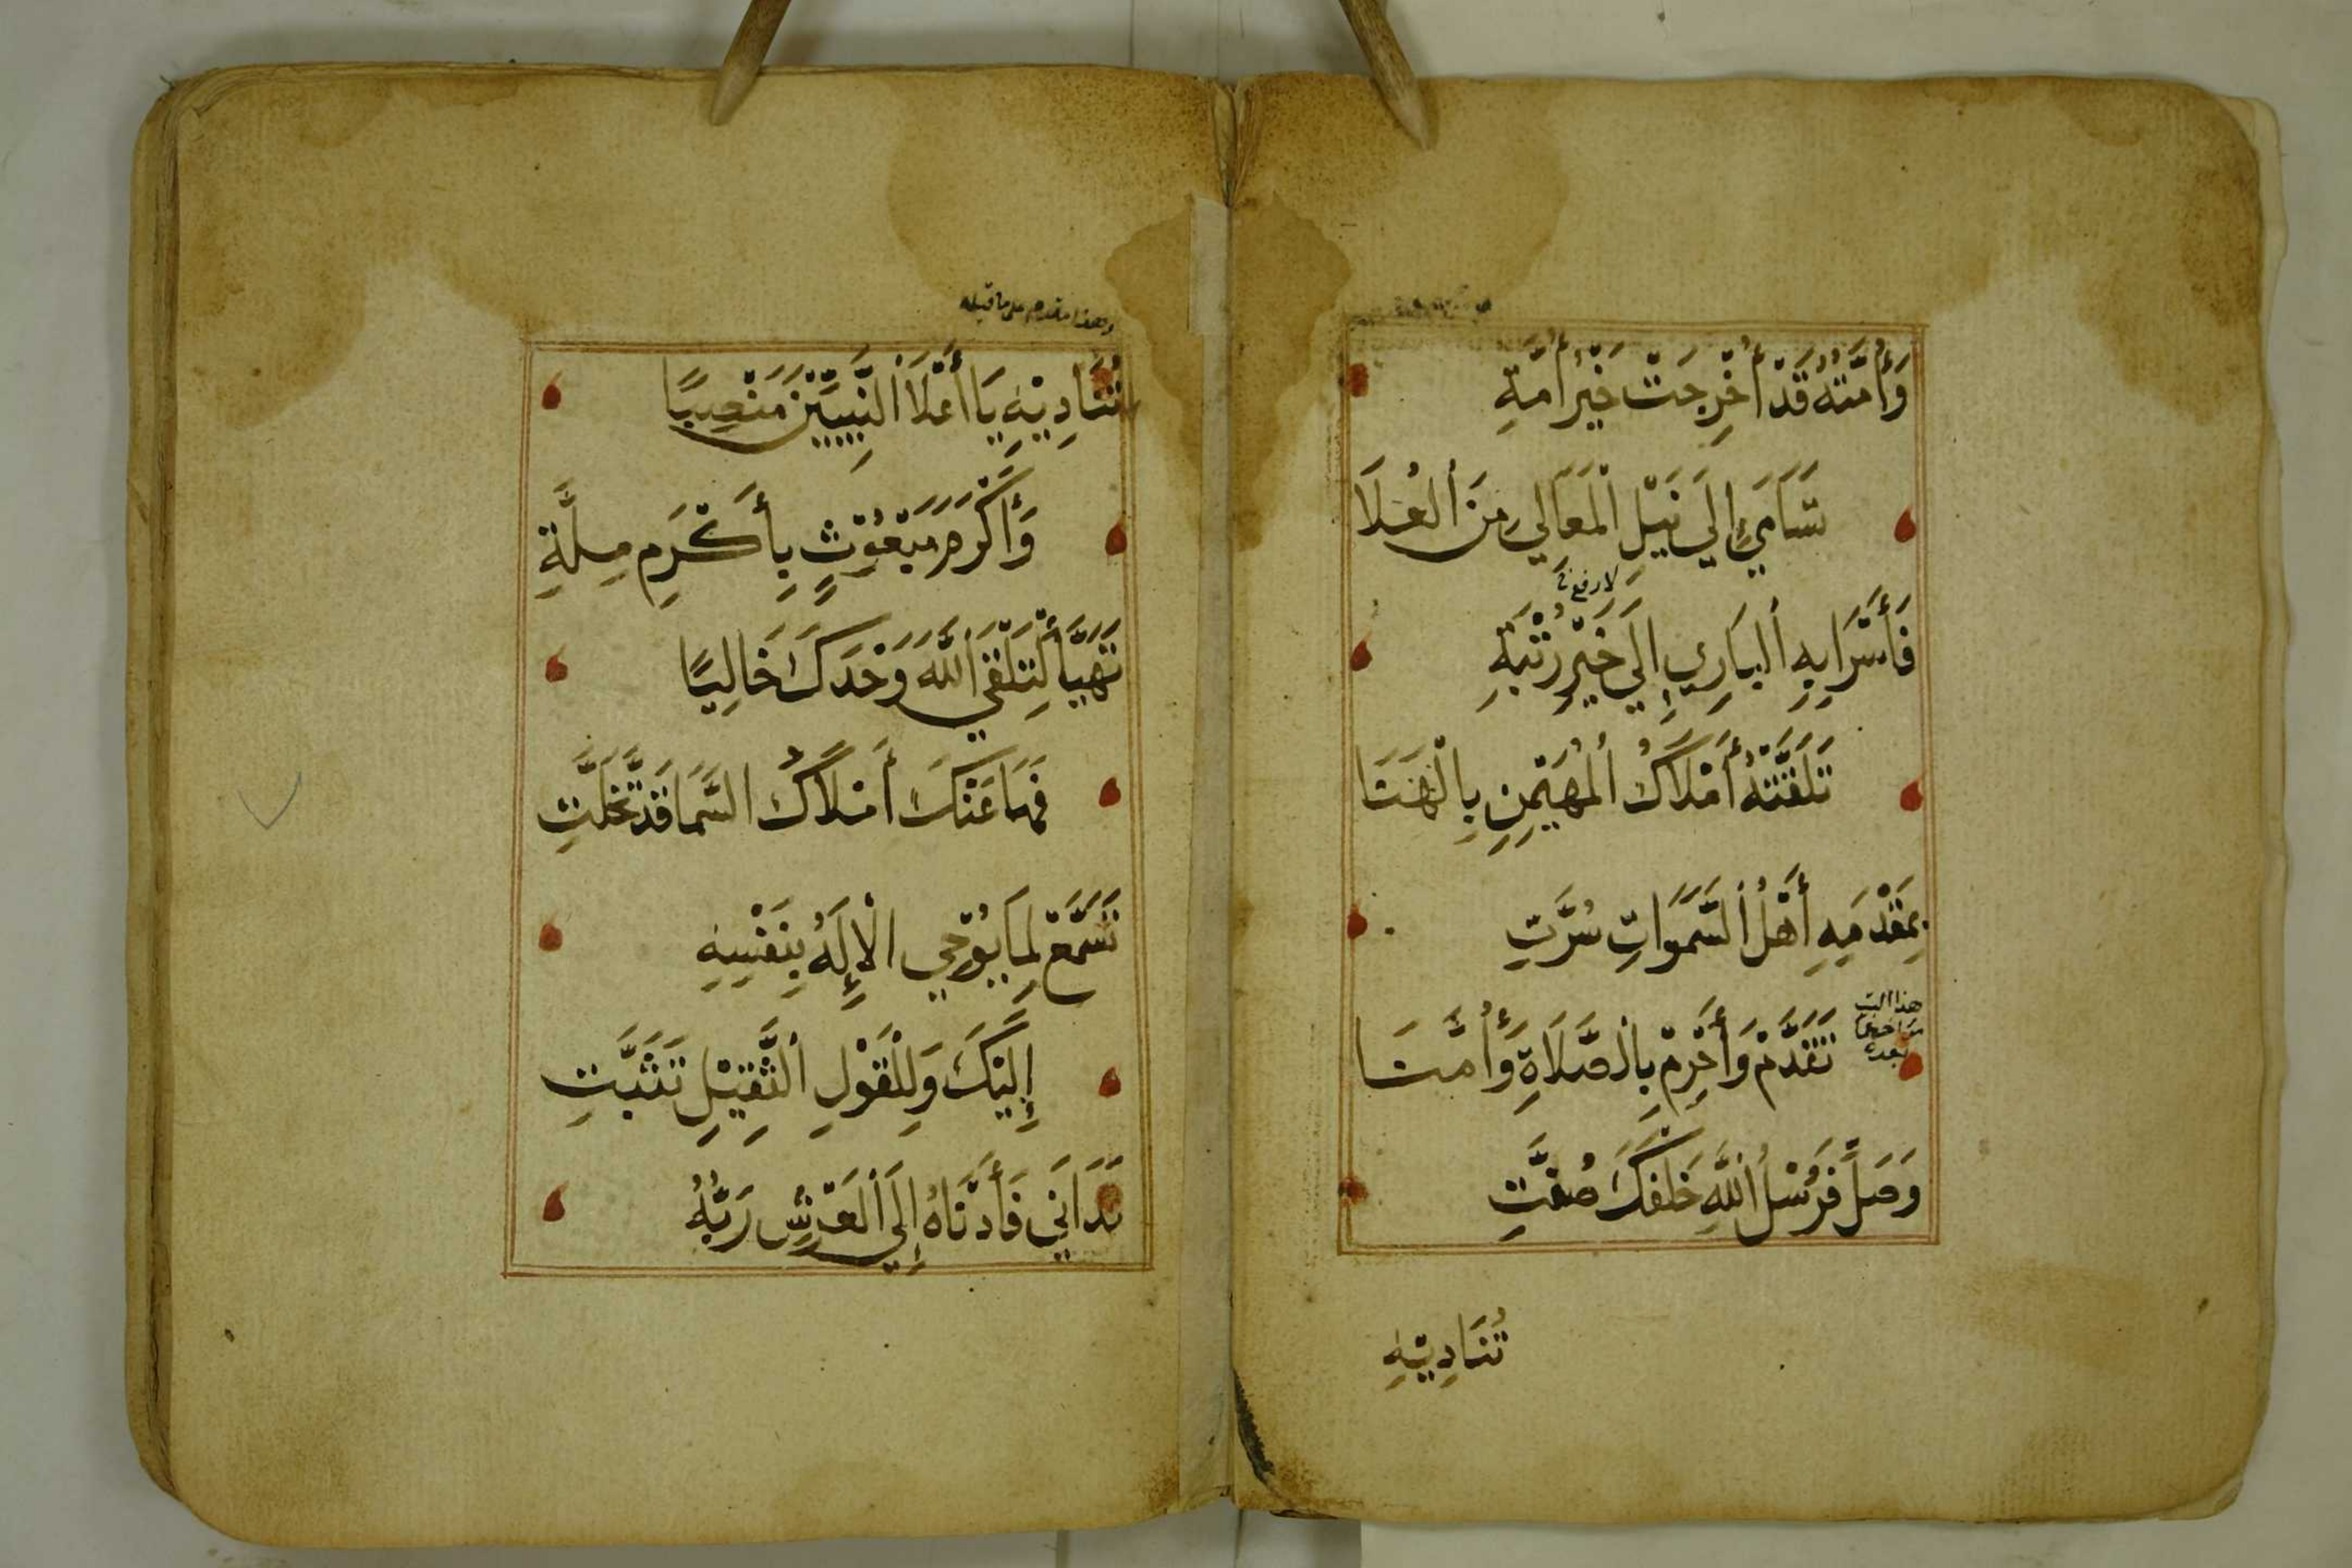 وَأُمَّتُهُ قَدْ أُخْرِجَتْ خَيْرَ أُمَّةٍ
تَسَامَىٰ إِلَى نَيْلِ الْمَعَالِي مِنَ الْعُلَا
فَأَسْرَا بِهِ الْبَارِي إِلَى خَيْرِ رُتْبَةِ
تَلَقَّتْهُ أَمْلَاكُ الْمُهَيْمِنِ بِالْهَنَا
بِمَقْدَمِهِ أَهْلُ السَّمَوَاتِ سُرَّتِ
هذا البيت
بعده
تَقَدَّمْ وَأَحْرِمْ بِالصَّلَاةِ وَأُمَّنَا
وَصَلِّ فَرُسْلُ اللَّهِ خَلْفَكَ صُفَّتِ
تُنَادِيْهِ
وهذا مقدم على ما قبله
تُنَادِيْهِ يَا أَعْلَا النَّبِيِّيْنَ مَنْصِبًا
وَأَكْرَمَ مَبْعُوْثٍ بِأَكْرَمِ مِلَّةِ
تَهَيَّأْ لِتَلْقَى اللَّهَ وَحْدَكَ خَالِيًا
فَهَا عَنْكَ أَمْلَاكُ السَّمَا قَدْ تَخَلَّتِ
تَسَمَّعْ لِمَا يُوْحِي الْإِلَهُ بِنَفْسِهِ
إِلَيْكَ وَلِلْقَوْلِ الثَّقِيْلِ تَثَبَّتِ
تَدَانَى فَأَدْنَاهُ إِلَى الْعَرْشِ رَبُّهُ